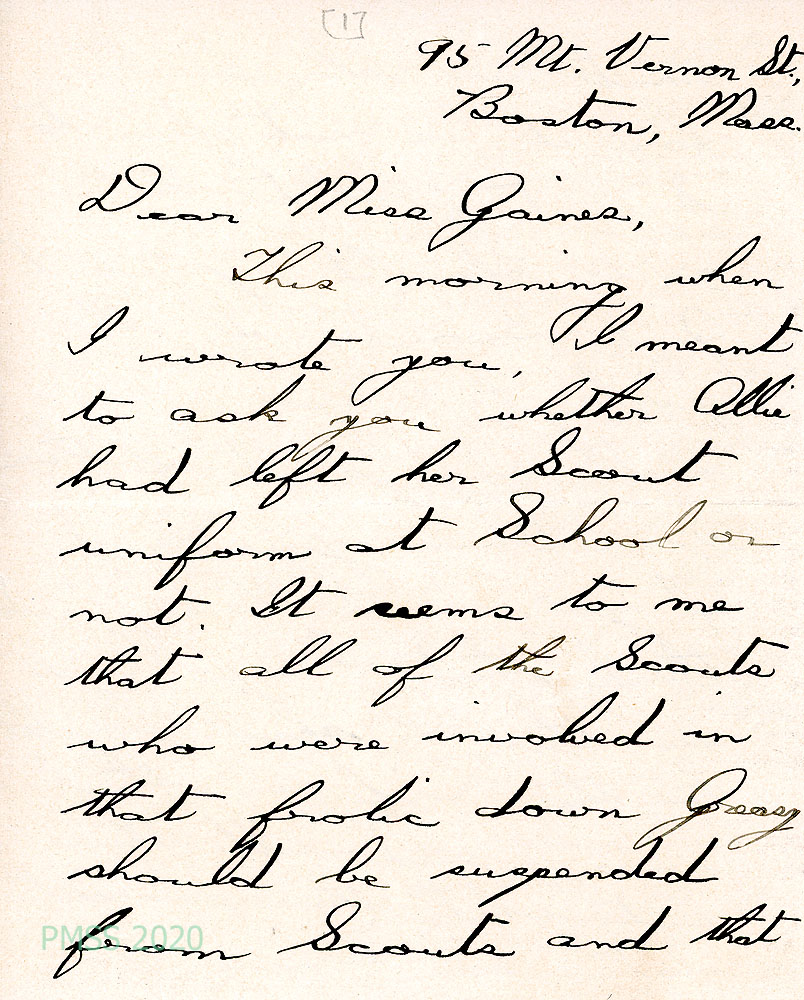 [1]
95 Mt. Vernon St.,
Boston, Mass.
Dear Miss Gaines,
This morning when
I wrote you, I meant
to ask you whether Allie
had left her Scout
uniform at School or
not. It seems to me
that all of the Scouts
who were involved in
that frolic down Greasy
should be suspended
from Scouts and that
PMSS 2020